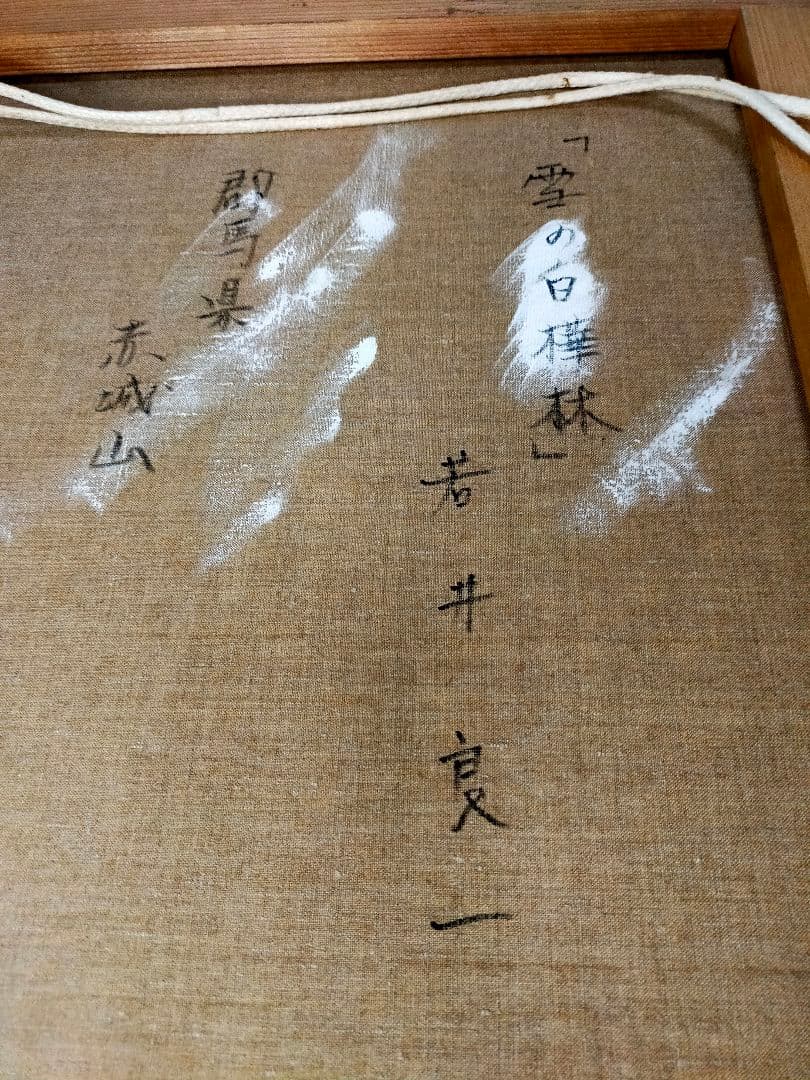 「雪の白樺林」
若井良一
郡馬県
赤城山